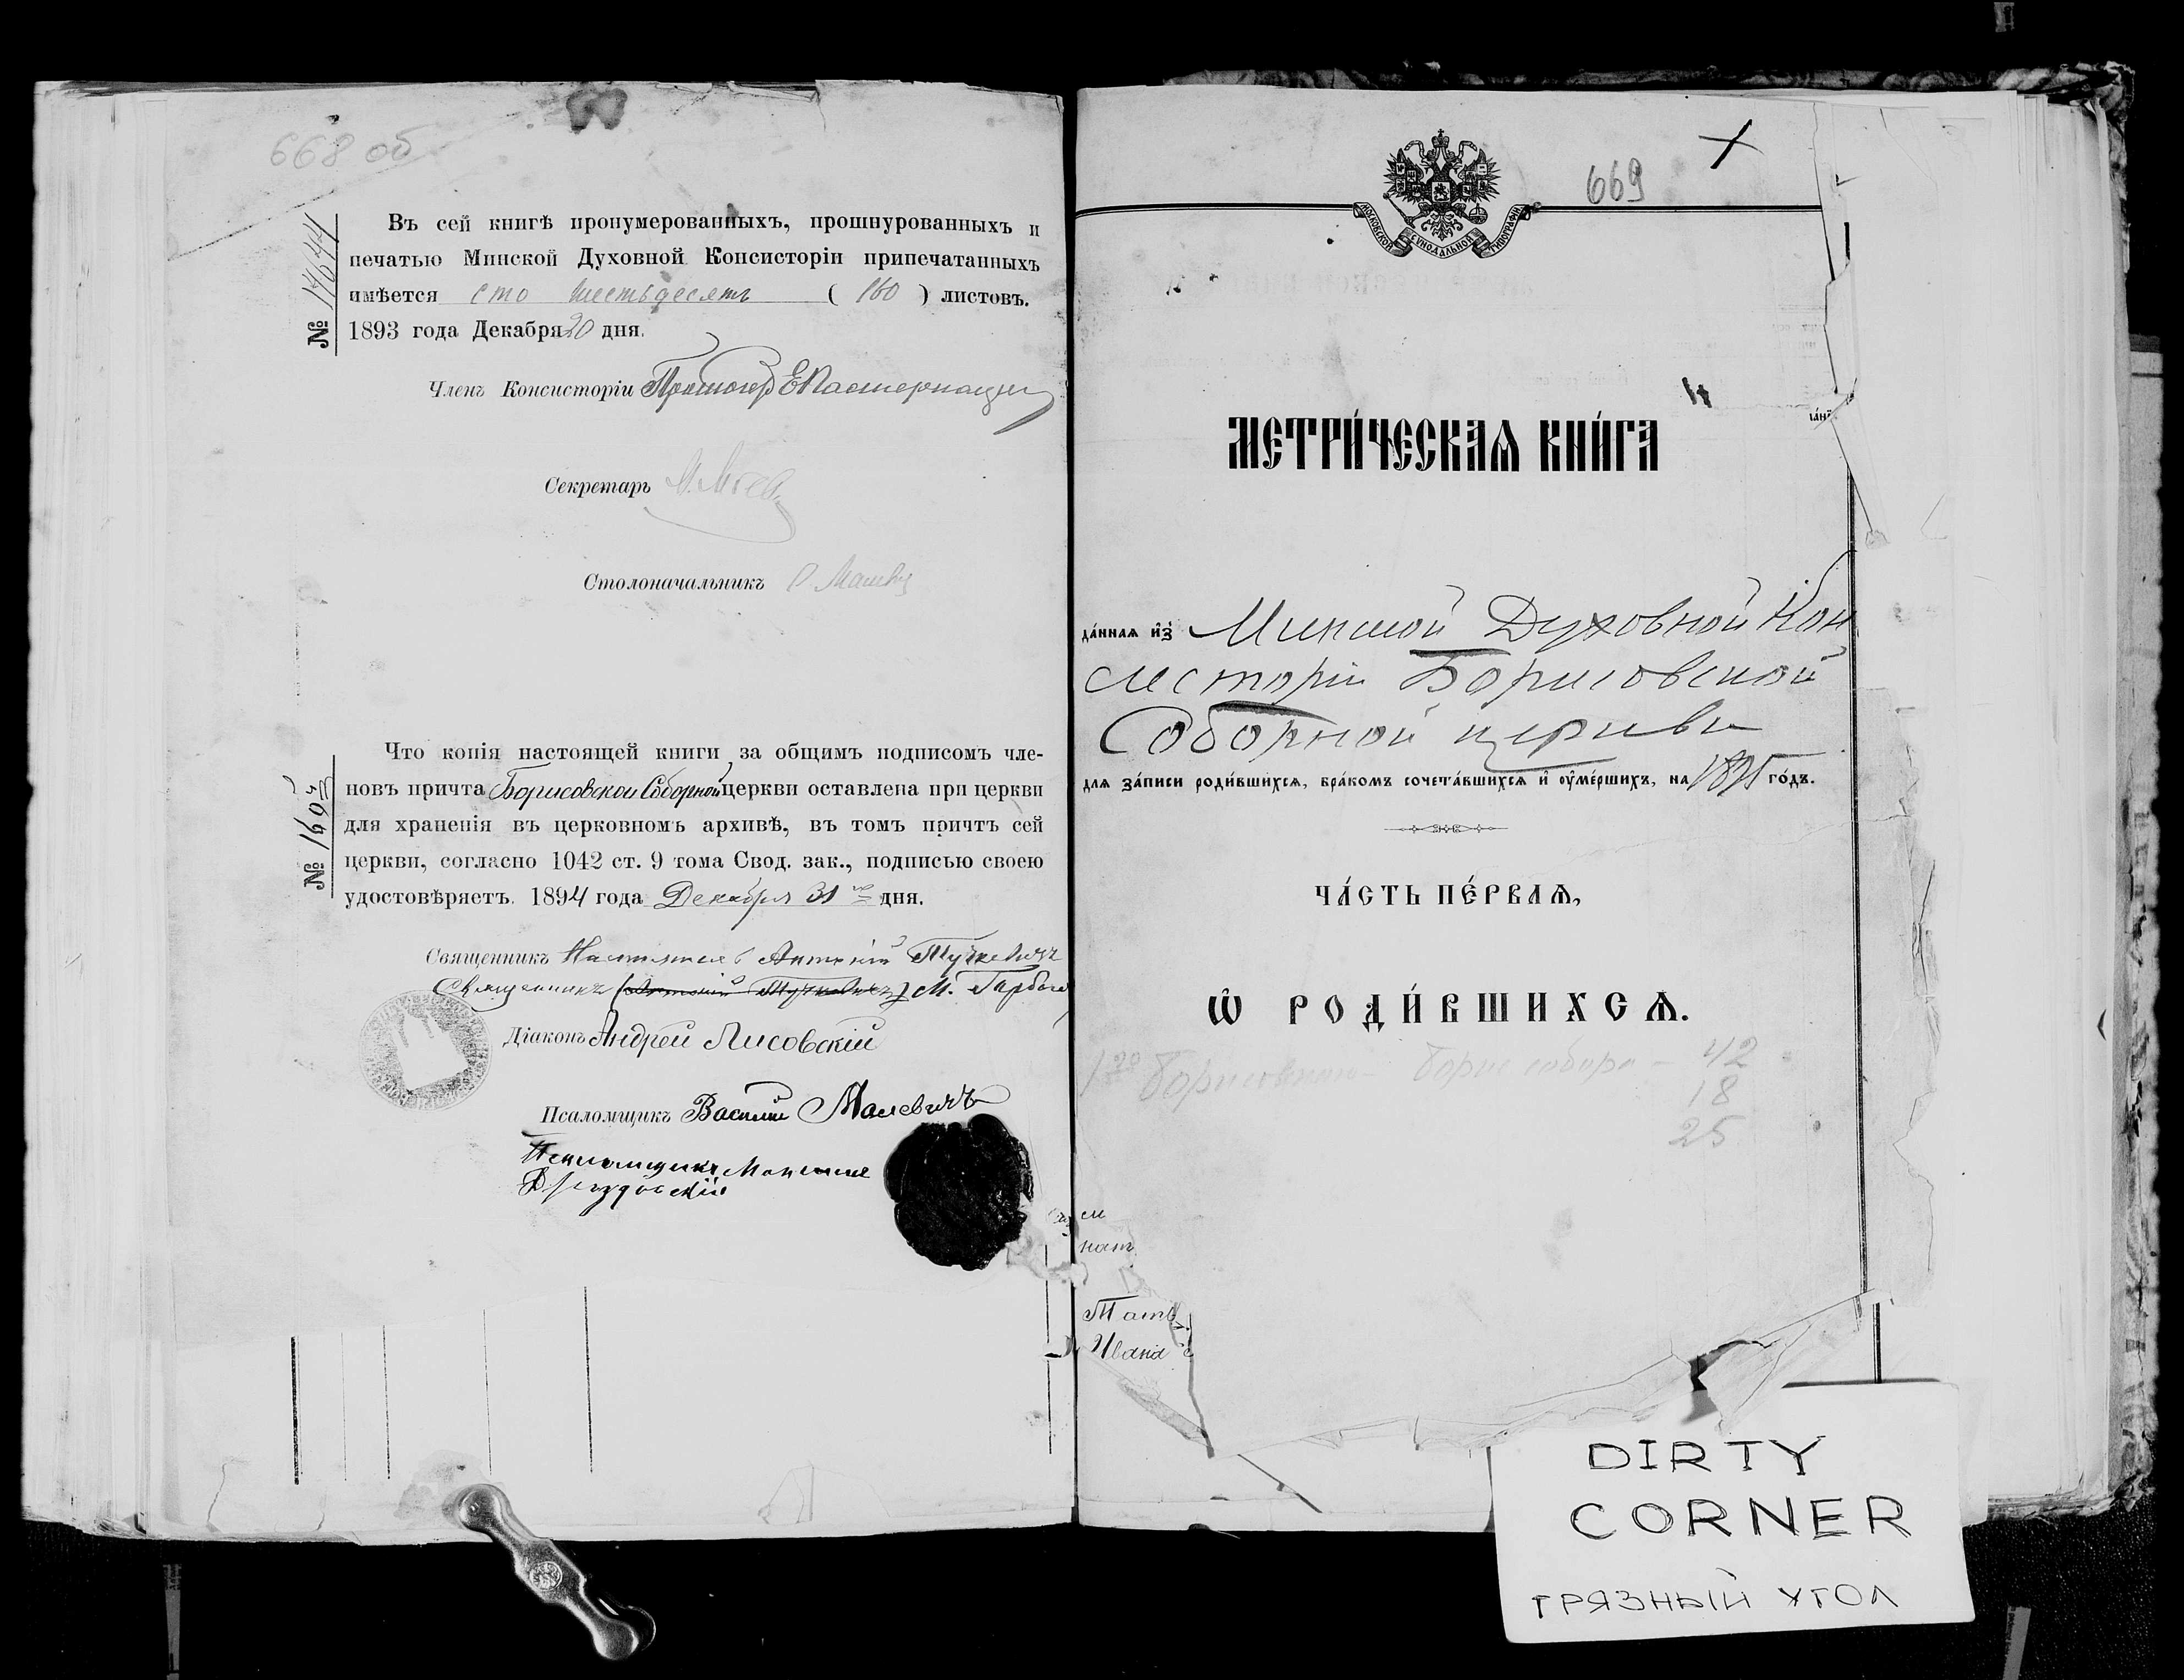 668 об
Въ сей книгѣ пронумерованныхъ, прошнурованныхъ и
печатью Минской Духовной Консисторіи припечатанныхъ
имѣется сто шестьдесятъ ( 160 ) листовъ.
1893 года Декабря 20 дня.
№ 17644
Членъ Консисторіи
Секретарь
Столоначальникъ
Что копія настоящей книги за общимъ подписомъ чле-
новъ причта Борисовской Соборной церкви оставлена при церкви
для храненія въ церковномъ архивѣ, въ томъ причтъ сей
церкви, согласно 1042 ст. 9 тома Свод. зак., подписью своею
удостовѣряетъ. 1894 года Декабря 31 дня.
№
Священникъ Антоній
Священникъ М.
Діаконъ Андрей Лисовскій
Псаломщикъ Василій Малевичъ
669
МОСКОВСКОЙ СѴНОДАЛЬНОЙ ТИПОГРАФІИ
МЕТРИ́ЧЕСКАѦ КНИ́ГА
да́ннаѧ и҆з̾ Минской Духовной Кон
систоріи Борисовской
Соборной церкви
для за́писи роди́вшихсѧ, бра́комъ сочета́вшихсѧ и҆ оу҆ме́ршихъ, на 1895 го́дъ.
ЧА́СТЬ ПЕ́РВАѦ,
Ѡ҆ РОДИ́ВШИХСѦ.
42
18
25
см
Ивана
DIRTY
CORNER
ГРЯЗНЫЙ УГОЛ